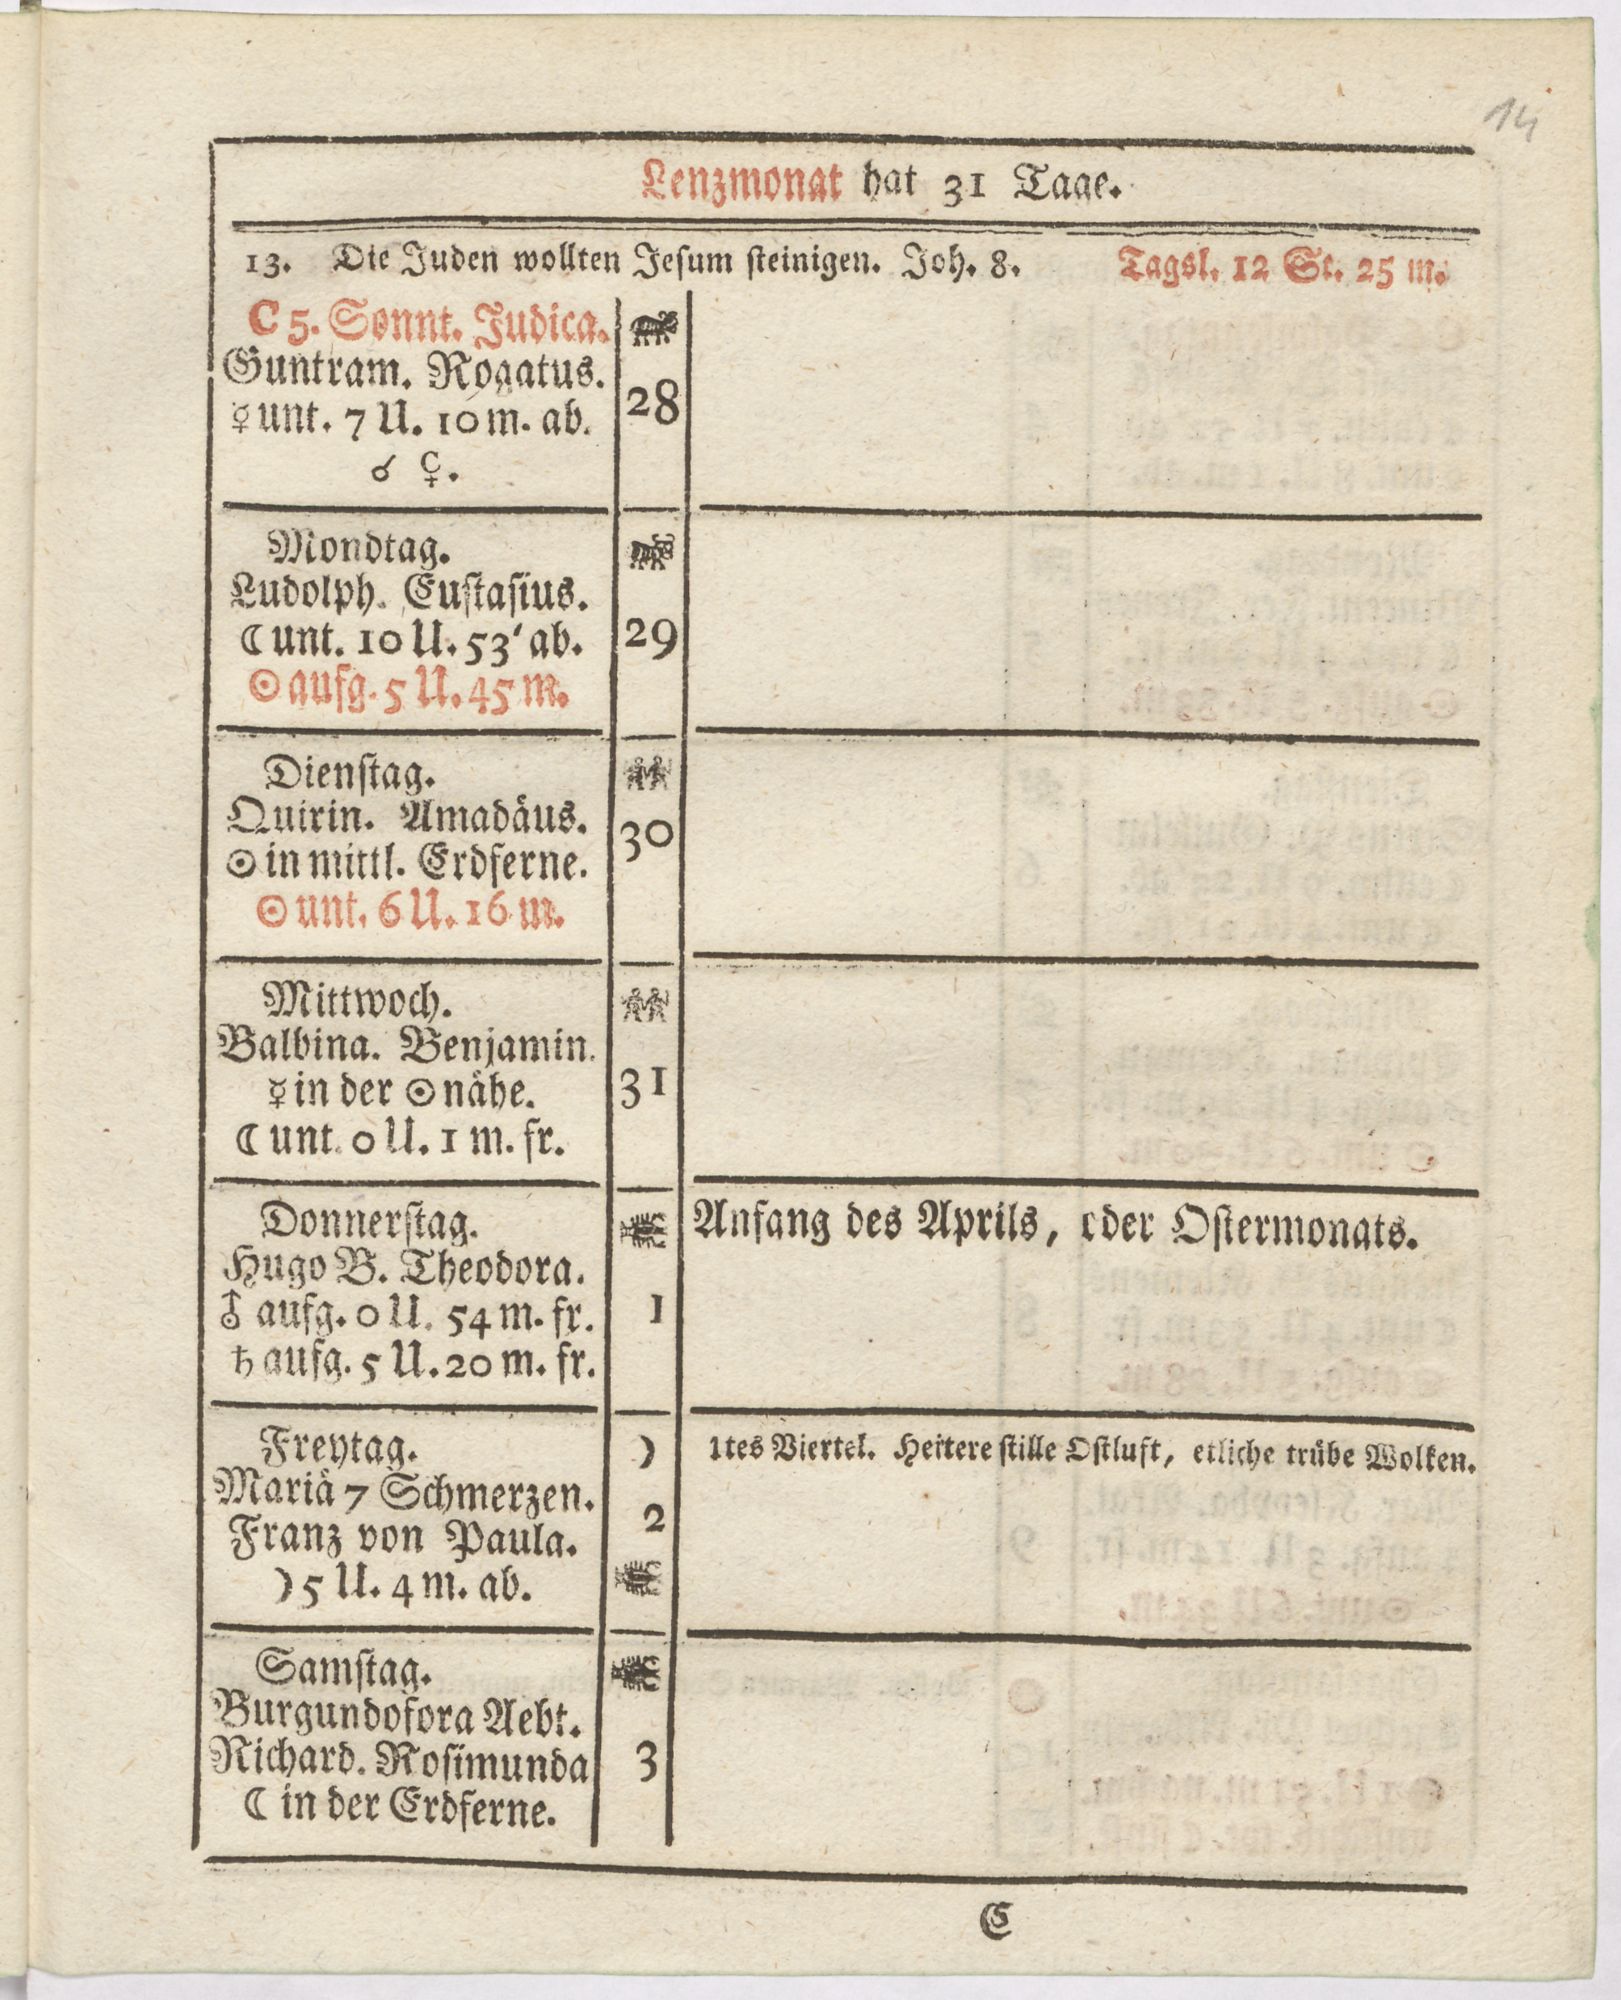 14
Lenzmonat hat 31 Tage.
13. Die Juden wollten Jesum steinigen. Joh. 8. Tagsl. 12 St. 25 m.
C 5. Sonnt. Judica.
Guntram. Rogatus.
☿ unt. 7 U. 10 m. ab.
☌ ♀.
28
Mondtag.
Ludolph. Eustasius.
☾ unt. 10 U. 53' ab.
☉ aufg. 5 U. 45 m.
29
Dienstag.
Quirin. Amadäus.
☉ in mittl. Erdferne.
☉ unt. 6 U. 16 m.
30
Mittwoch.
Balbina. Benjamin.
☿ in der ☉ nähe.
☾ unt. 0 U. 1 m. fr.
31
Donnerstag.
Hugo B. Theodora.
♁ aufg. 0 U. 54 m. fr.
♄ aufg. 5 U. 20 m. fr.
1
Anfang des Aprils, oder Ostermonats.
Freytag.
Mariä 7 Schmerzen.
Franz von Paula.
☽ 5 U. 4 m. ab.
☽
2
1tes Viertel. Heitere stille Ostluft, etliche trübe Wolken.
Samstag.
Burgundofora Aebt.
Richard. Rosimunda
☾ in der Erdferne.
3
C